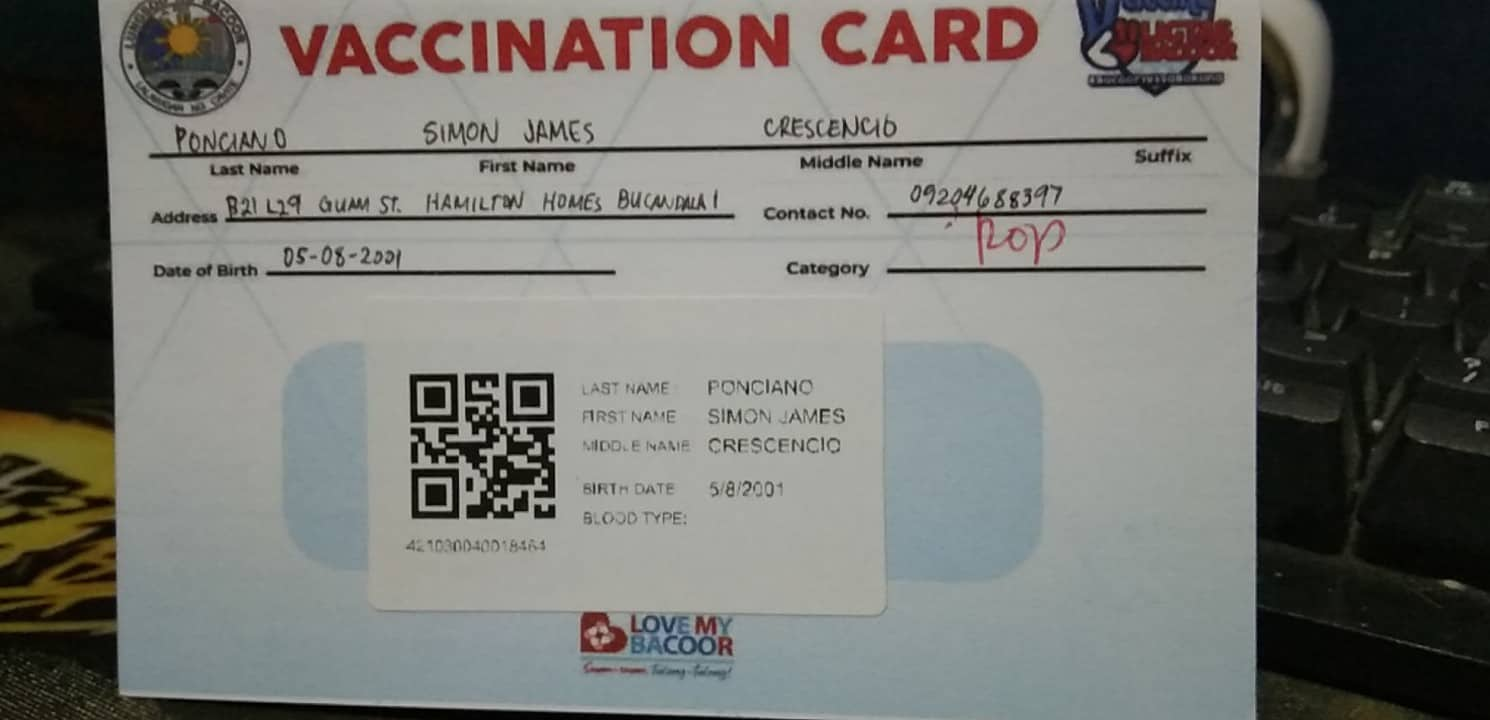 LUNGSOD NG BACOOR
LALAWIGAN NG CAVITE
VACCINATION CARD
BACOOR
PONCIANO SIMON JAMES CRESCENCIO
Last Name First Name Middle Name Suffix
Address B21 L29 GUAM ST. HAMILTON HOMES BUCANDALA 1 Contact No. 09204688397
Date of Birth 05-08-2001 Category ROP
LAST NAME: PONCIANO
FIRST NAME SIMON JAMES
MIDDLE NAME CRESCENCIO
BIRTH DATE 5/8/2001
BLOOD TYPE:
421030040018464
LOVE MY
BACOOR